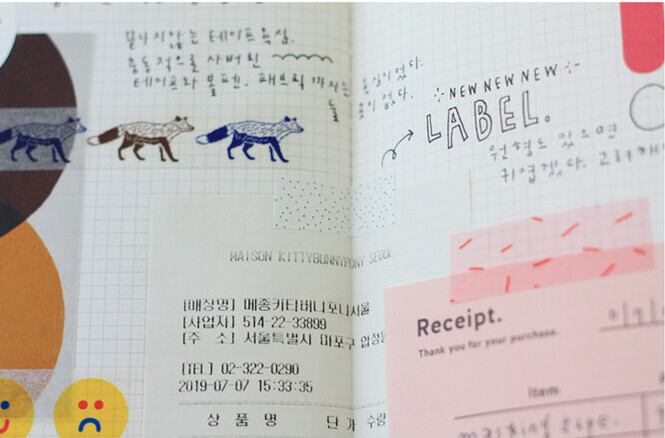 끝나지않는 테이프욕심.
충동적으로 사버린
테이프와 볼펜. 패브릭까지는
들
욕심이었다.
없었다.
NEW NEW NEW
LABEL.
원형도 있으면
귀엽겠다. 그러게
MAISON KITTYBUNNYPONY SEOUL
[매장명] 메종키티버니포니서울
[사업자] 514-22-33899
[주 소] 서울특별시 마포구
[TEL] 02-322-0290
2019-07-07 15:33:35
상 품 명 단 가 수량
Receipt.
Thank you for your purchase.
Item.
masking tape.